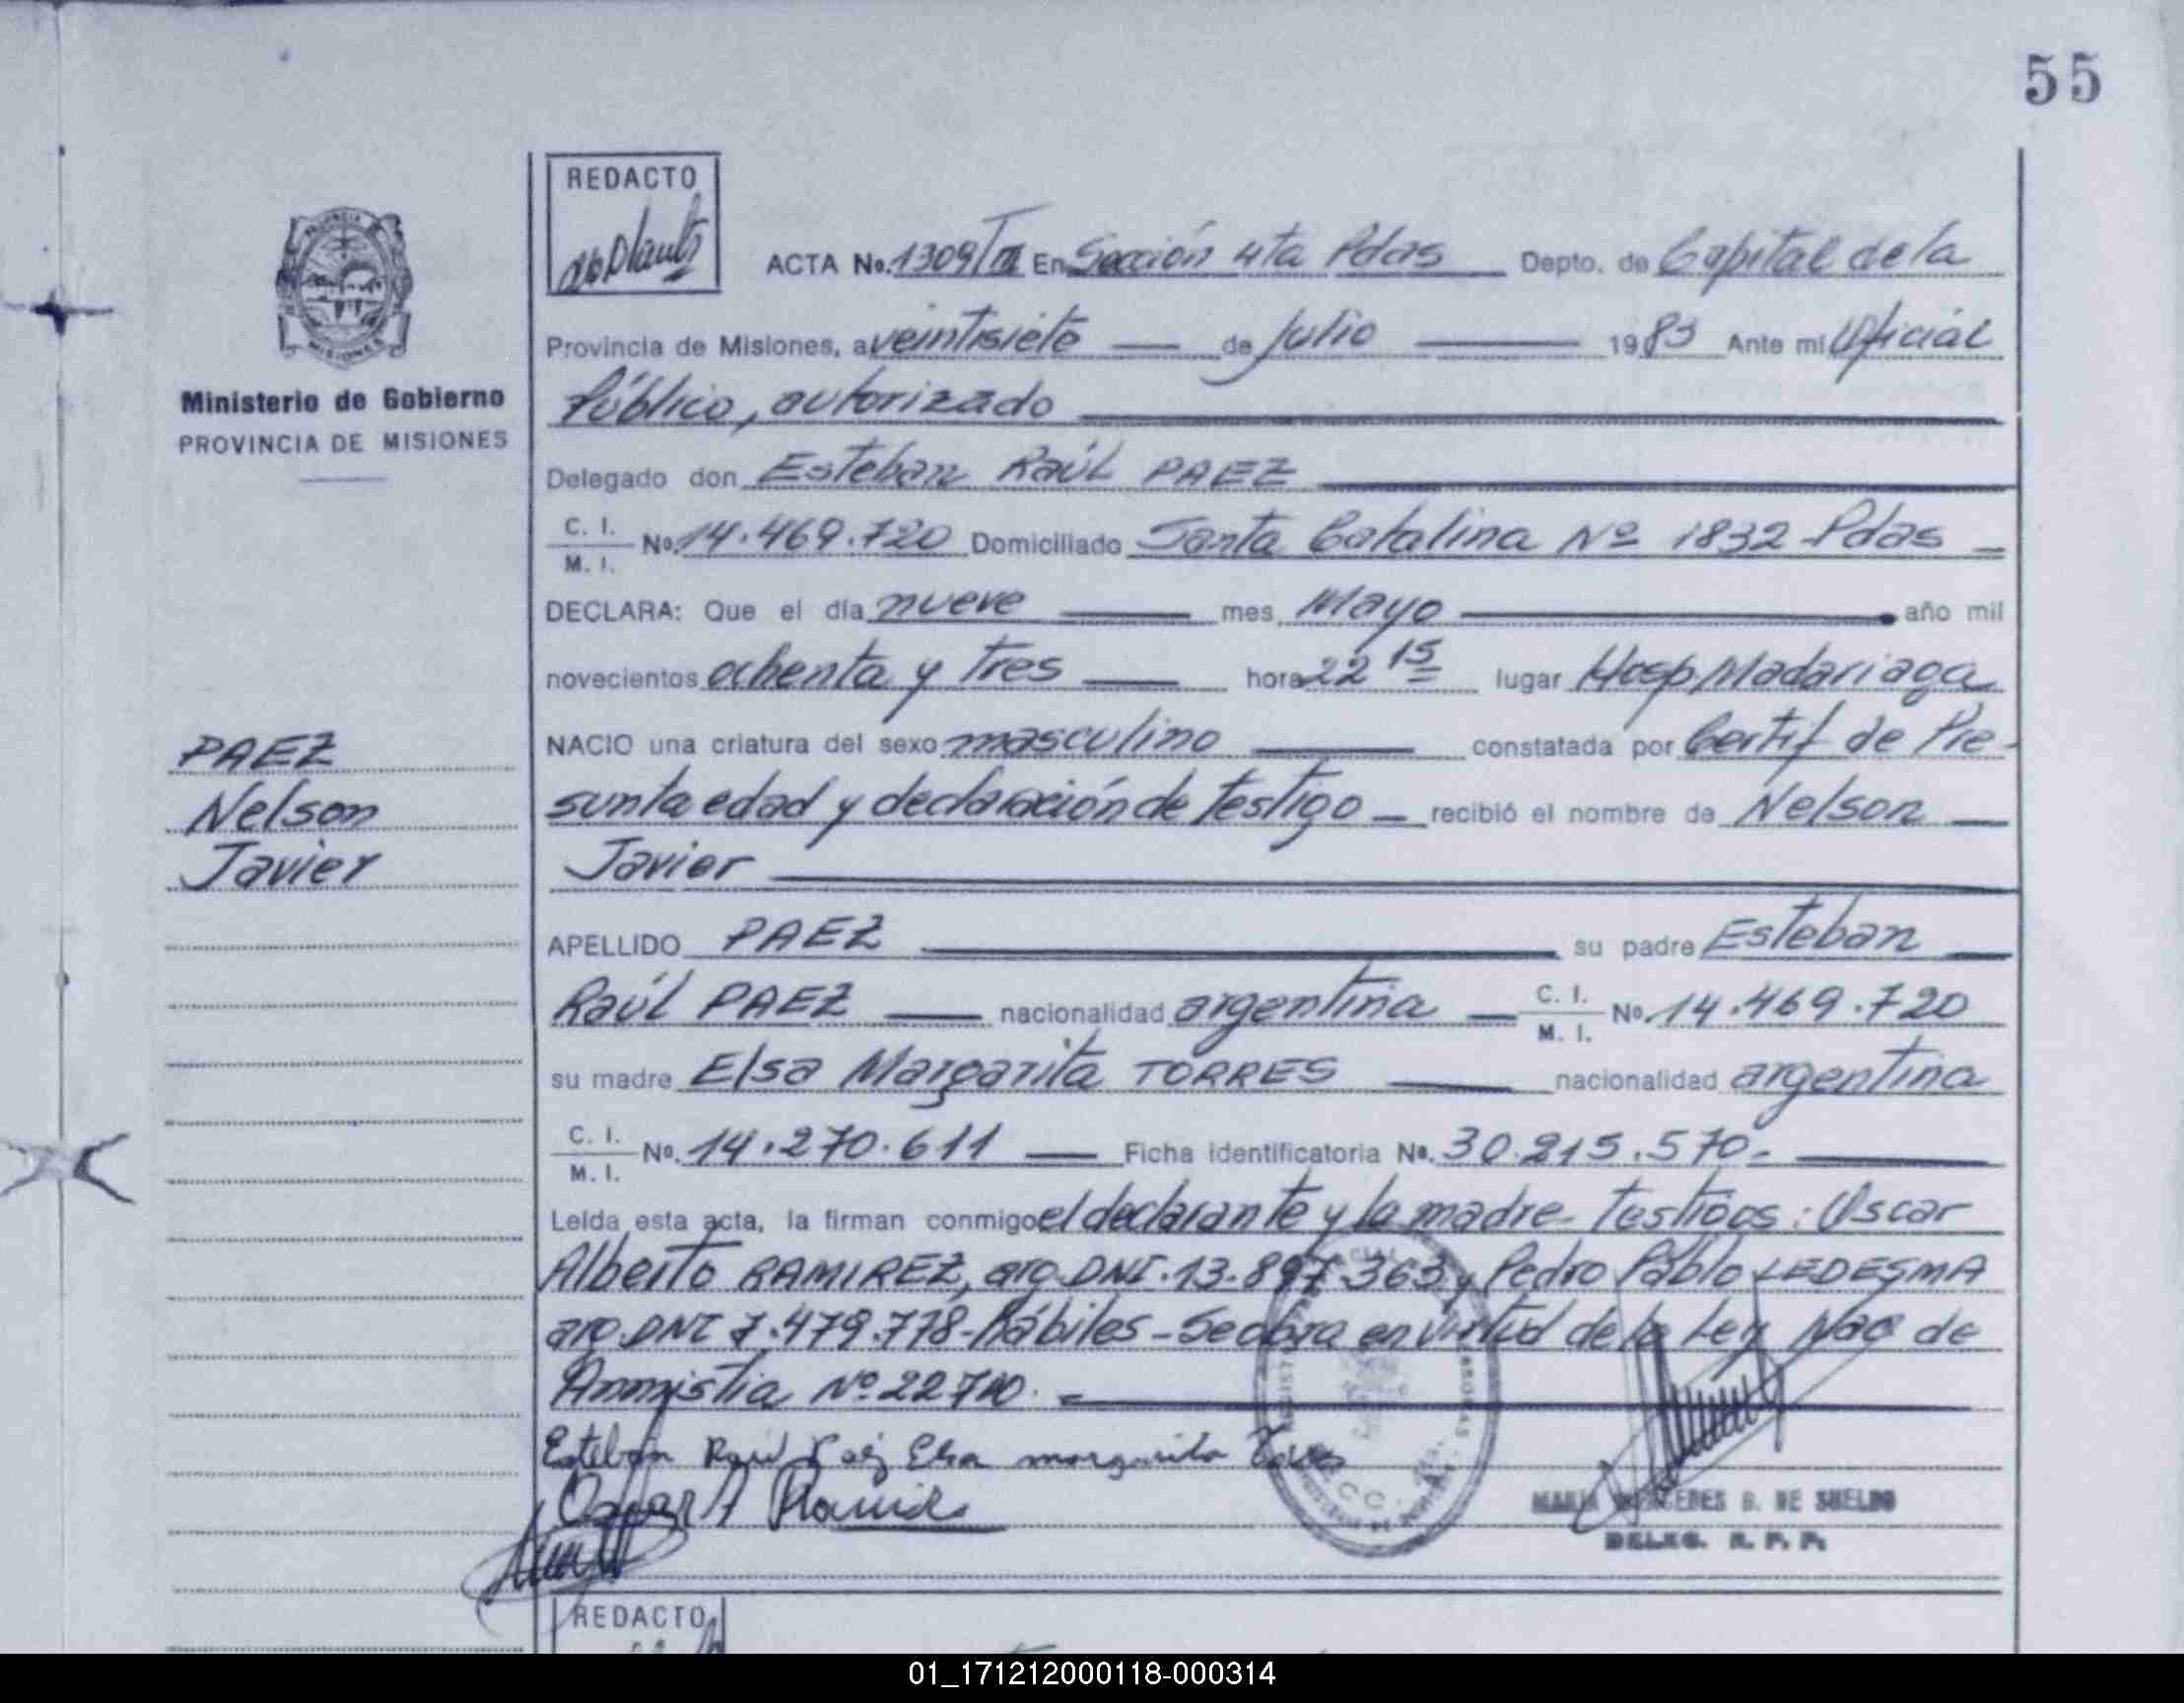 55
REDACTO
ACTA No. 1309/III En Sección 4ta Pdas Depto. de Capital de la
Provincia de Misiones, a veintisiete de Julio 1983 Ante mi Oficial
Público, autorizado
Ministerio de Gobierno
PROVINCIA DE MISIONES
Delegado don Esteban Raúl PAEZ
C. I. / M. I. No. 14.469.720 Domiciliado Santa Catalina Nº 1832 - Pdas
DECLARA: Que el día nueve mes Mayo año mil
novecientos ochenta y tres hora 22 15 lugar Hosp Madariaga
NACIO una criatura del sexo masculino constatada por Certif de Pre-
sunta edad y declaración de testigo recibió el nombre de Nelson
Javier
PAEZ
Nelson
Javier
APELLIDO PAEZ su padre Esteban
Raúl PAEZ nacionalidad argentina C. I. / M. I. No. 14.469.720
su madre Elsa Margarita TORRES nacionalidad argentina
C. I. / M. I. No. 14.270.611 Ficha identificatoria No. 30.215.570.-
Leída esta acta, la firman conmigo el declarante y la madre - Testigos: Oscar
Alberto RAMIREZ, arg. DNI. 13.897.363 y Pedro Pablo LEDESMA
arg. DNI 7.479.778 - hábiles - Se labra en virtud de la Ley Nac de
Ammistia Nº 22710.
Esteban Raul Paez Elsa margarita Torres
Oscar A Ramirez
MARIA MERCEDES B. DE SUELDO
DELEG. R. P. P.
REDACTO
01_171212000118-000314